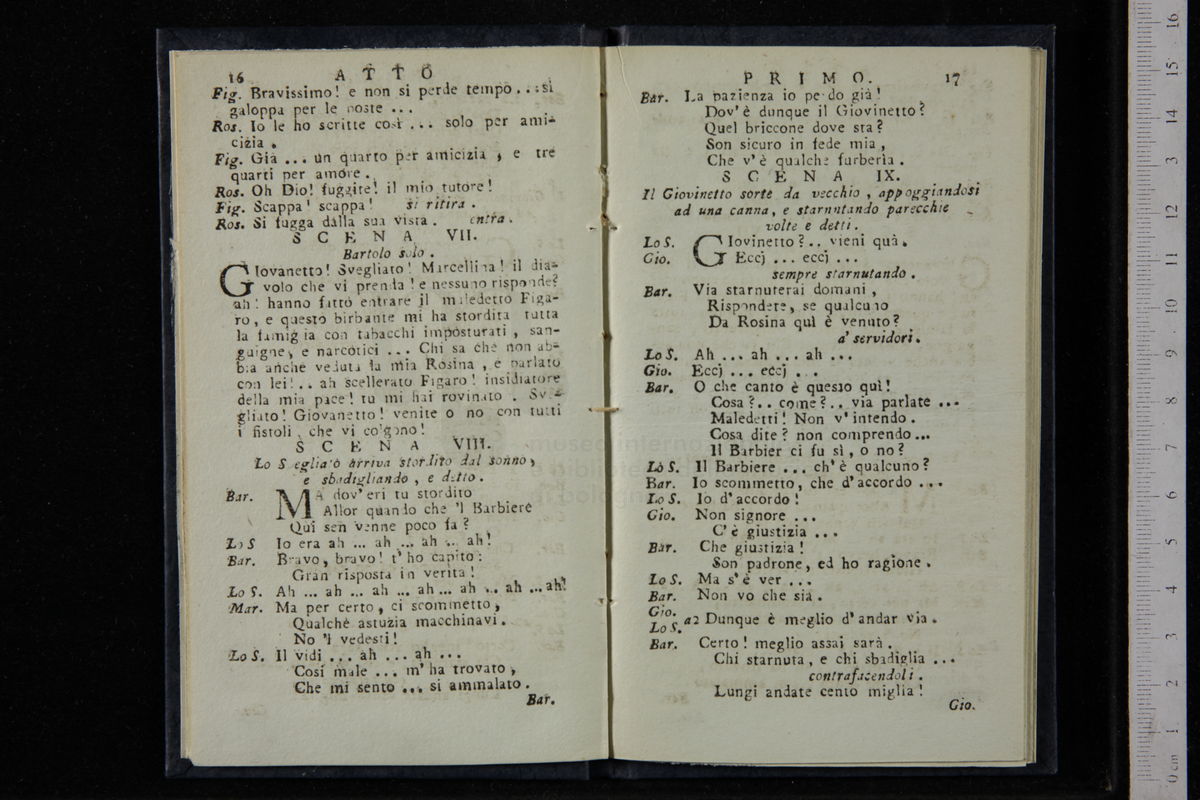 16 ATTO
Fig. Bravissimo! e non si perde tempo...si
galoppa per le poste ...
Ros. Io le ho scritte così ... solo per ami-
cizia.
Fig. Già ... un quarto per amicizia, e tre
quarti per amore.
Ros. Oh Dio! fuggite! il mio tutore!
Fig. Scappa! scappa! si ritira.
Ros. Si fugga dalla sua vista. entra.
SCENA VII.
Bartolo solo.
GIovanetto! Svegliato! Marcellina! il dia-
volo che vi prenda! e nessuno risponde?
ah! hanno fatto entrare il maledetto Figa-
ro, e questo birbante mi ha stordita tutta
la famiglia con tabacchi imposturati, san-
guigne, e narcotici ... Chi sa che non ab-
bia anche veduta la mia Rosina, e parlato
con lei!.. ah scellerato Figaro! insidiatore
della mia pace! tu mi hai rovinato. Sve-
gliato! Giovanetto! venite o no con tutti
i fistoli, che vi colgono!
SCENA VIII.
Lo Svegliato arriva stordito dal sonno,
e sbadigliando, e detto.
Bar. MA dov'eri tu stordito
Allor quando che 'l Barbiere
Qui sen venne poco fa?
Lo S Io era ah ... ah ... ah ... ah!
Bar. Bravo, bravo! t'ho capito:
Gran risposta in verità!
Lo S. Ah ... ah ... ah ... ah ... ah ... ah ... ah!
Mar. Ma per certo, ci scommetto,
Qualche astuzia macchinavi.
No 'l vedesti!
Lo S. Il vidi ... ah ... ah ...
Così male ... m'ha trovato,
Che mi sento ... si ammalato.
Bar.
PRIMO. 17
Bar. La pazienza io perdo già!
Dov'è dunque il Giovinetto?
Quel briccone dove sta?
Son sicuro in fede mia,
Che v'è qualche furberia.
SCENA IX.
Il Giovinetto sorte da vecchio, appoggiandosi
ad una canna, e starnutando parecchie
volte e detti.
Lo S. GIovinetto?.. vieni quà.
Gio. Eccj ... eccj ...
sempre starnutando.
Bar. Via starnuterai domani,
Rispondete, se qualcuno
Da Rosina quì è venuto?
a' servidori.
Lo S. Ah ... ah ... ah ...
Gio. Eccj ... eccj ...
Bar. O che canto è questo quì!
Cosa?.. come?.. via parlate ...
Maledetti! Non v'intendo.
Cosa dite? non comprendo...
Il Barbier ci fu sì, o no?
Lo S. Il Barbiere ... ch'è qualcuno?
Bar. Io scommetto, che d'accordo ...
Lo S. Io d'accordo!
Gio. Non signore ...
C'è giustizia ...
Bar. Che giustizia!
Son padrone, ed ho ragione.
Lo S. Ma s'è ver ...
Bar. Non vo che sia.
Gio.
Lo S. a2 Dunque è meglio d'andar via.
Bar. Certo! meglio assai sarà.
Chi starnuta, e chi sbadiglia ...
contrafacendoli.
Lungi andate cento miglia!
Gio.
museo internaz
biblioteca
di bologna
0 cm 1 2 3 4 5 6 7 8 9 10 11 12 13 14 15 16